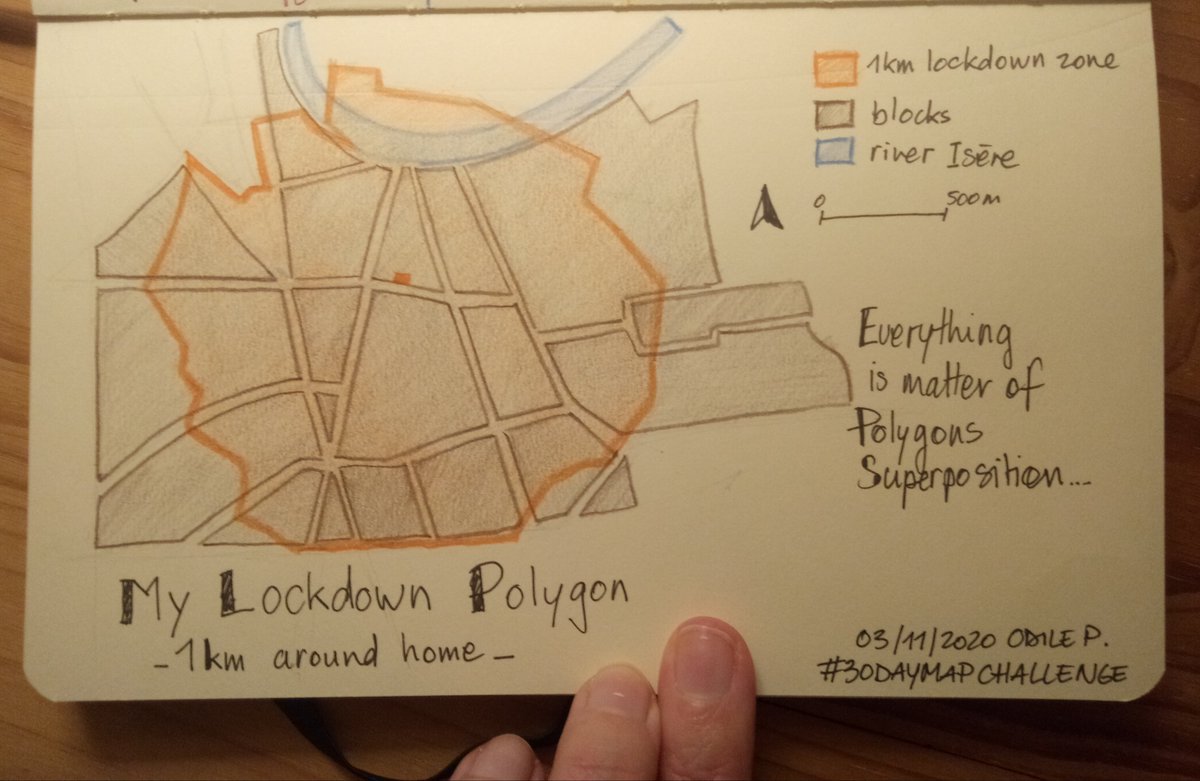 1km lockdown zone
blocks
river Isēre
0 500m
Everything
is matter of
Polygons
Superposition...
My Lockdown Polygon
_ 1km around home _
03/11/2020 ODILE P.
#30DAYMAPCHALLENGE